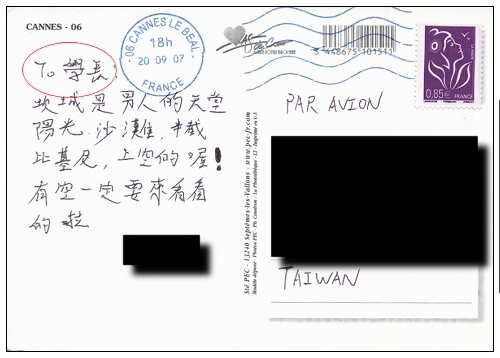 CANNES - 06
To 學長:
坎城是男人的天堂
陽光.沙灘.半截
比基尼,上空的喔!
有空一定要來看看
的啦
06 CANNES LE BEAL
18h
20 09 07
FRANCE
3 448675 101541
0,85€ FRANCE
PAR AVION
TAIWAN
www.pec-fr.com
Sté PEC - 13240 Septèmes-les-Vallons